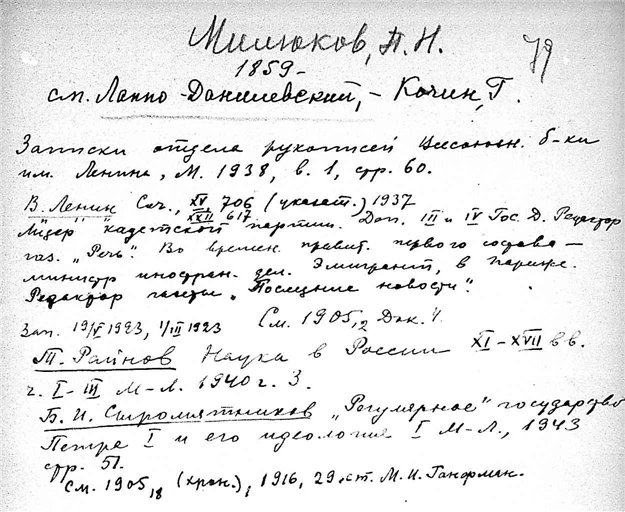 Милюков, П. Н.
79
1859 –
см. Лаппо-Данилевский, – Кочин, Г.
Записки отдела рукописей Всесоюзн. б-ки
им. Ленина, М. 1938, в. 1, стр. 60.
В. Ленин Соч., XV, 706 (указат.) 1937
XXII 617
Лидер кадетской партии. Деп. III и IV Гос. Д. Редактор
газ. „Речь". Во времен. правит. первого состава –
министр иностран. дел. Эмигрант, в Париже.
Редактор газеты „Последние новости".
Зап. 19/V 1923, 1/III 1923 См. 1905,2 Док. 4
Т. Райнов Наука в России XI–XVII вв.
ч. I–III М–Л. 1940 г. 3.
Б. И. Сыромятников „Регулярное" государство
Петра I и его идеология I М–Л., 1943
стр. 51.
См. 1905,18 (хрон.), 1916, 29 ст. М. И. Ганфман.